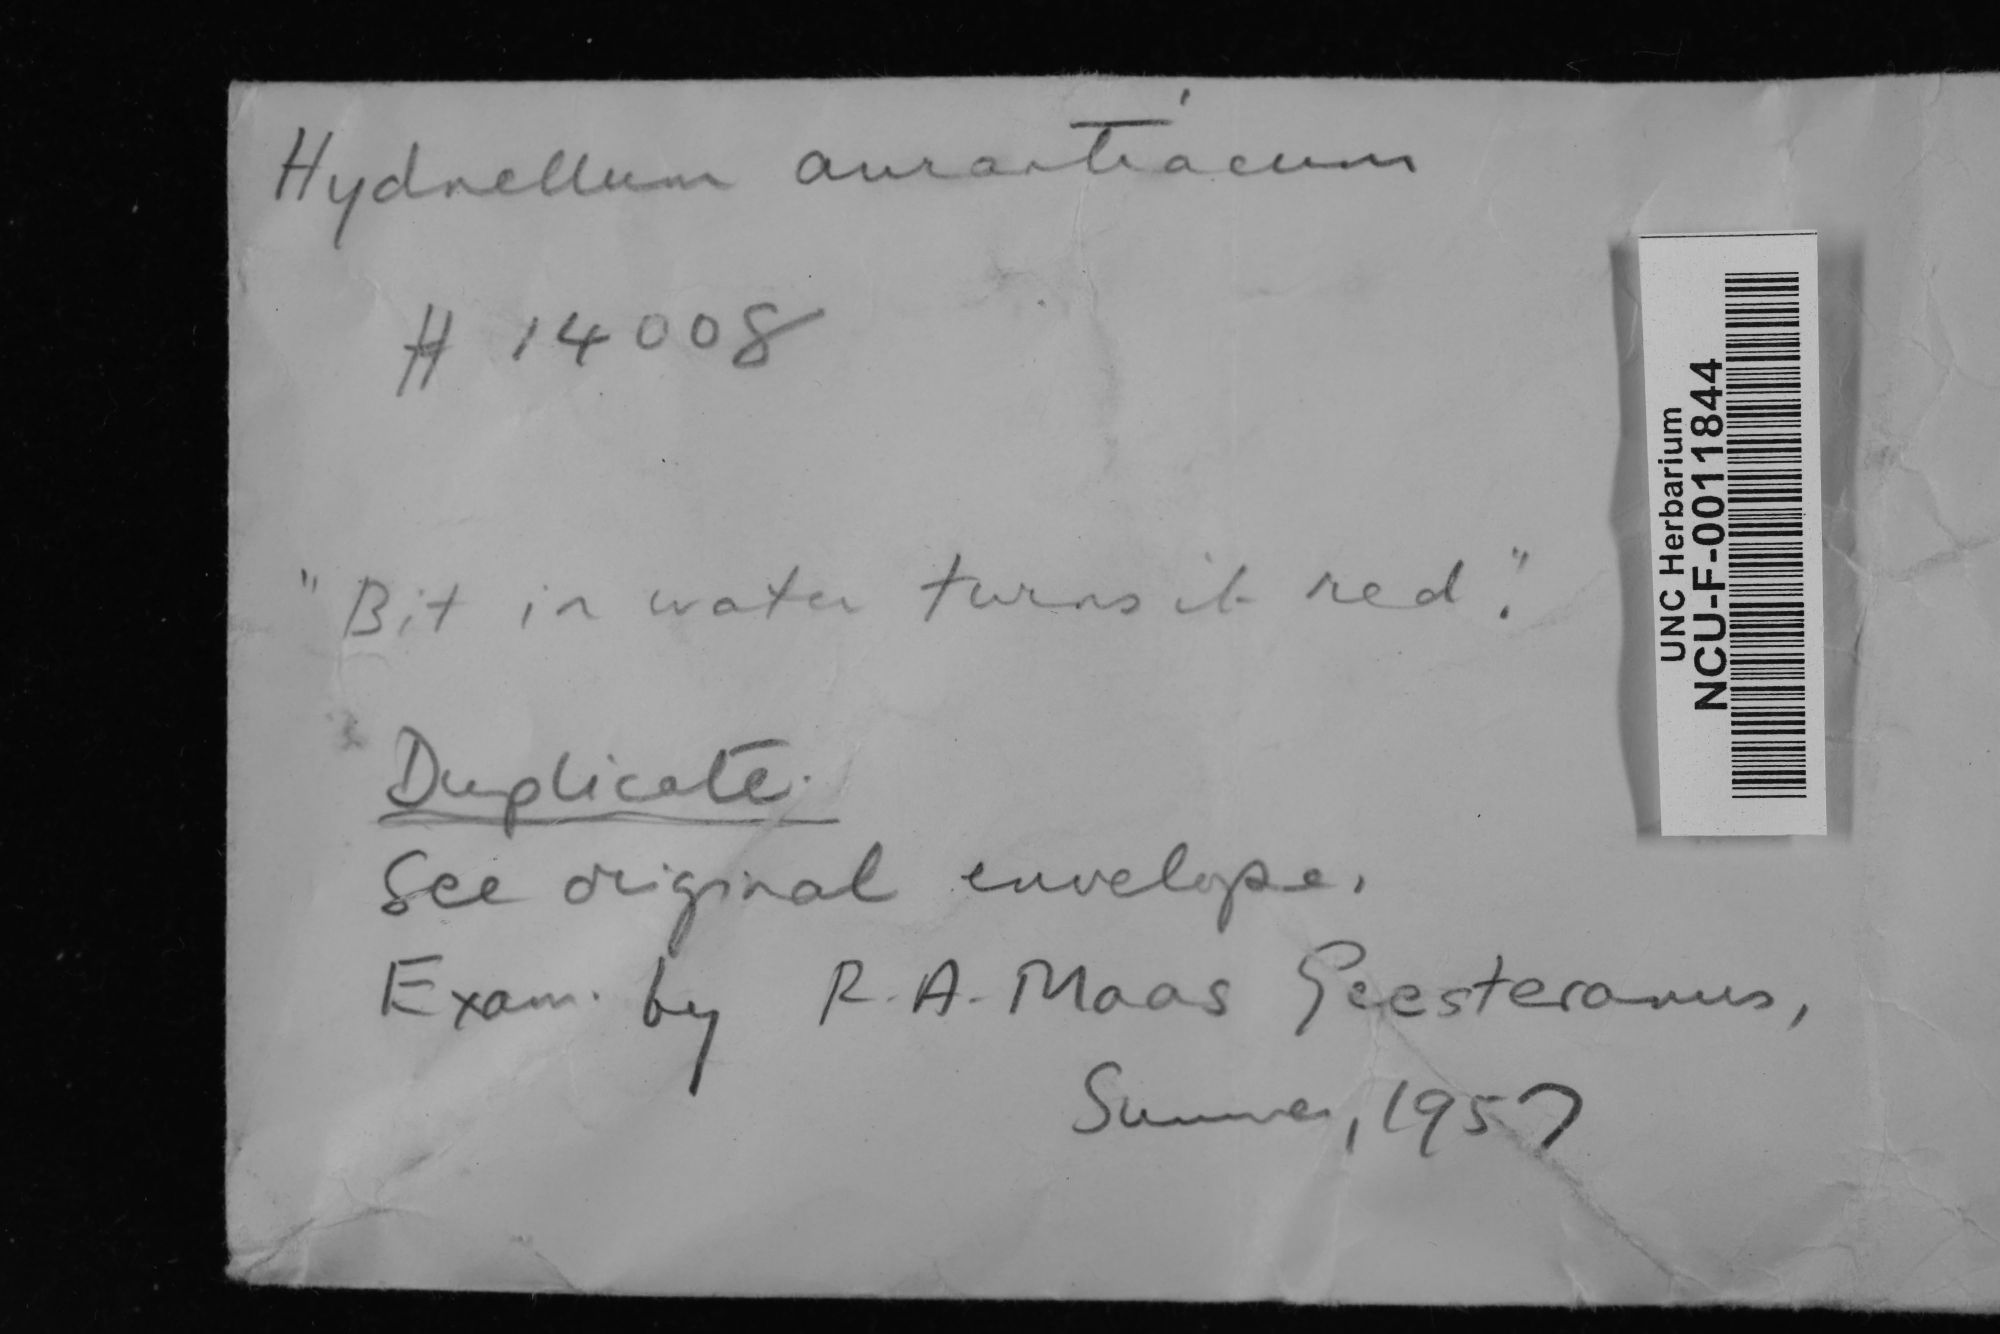 Hydnellum aurantiacum
# 14008
"Bit in water turns it red."
Duplicate.
See original envelope.
Exam. by R. A. Maas Geesteranus,
Summer, 1957
UNC Herbarium
NCU-F-0011844